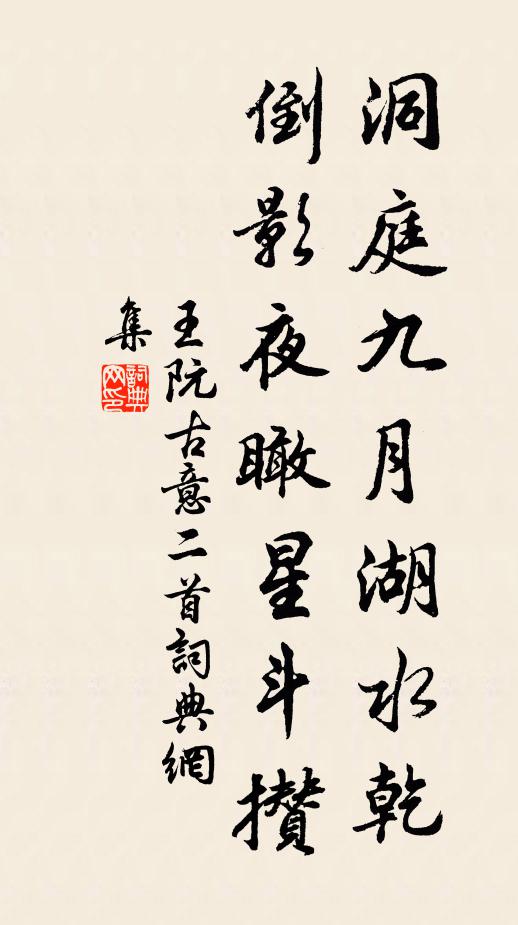 洞庭九月湖水乾
倒影夜瞰星斗攢
王阮古意二首詞典網
集
詞典
网印